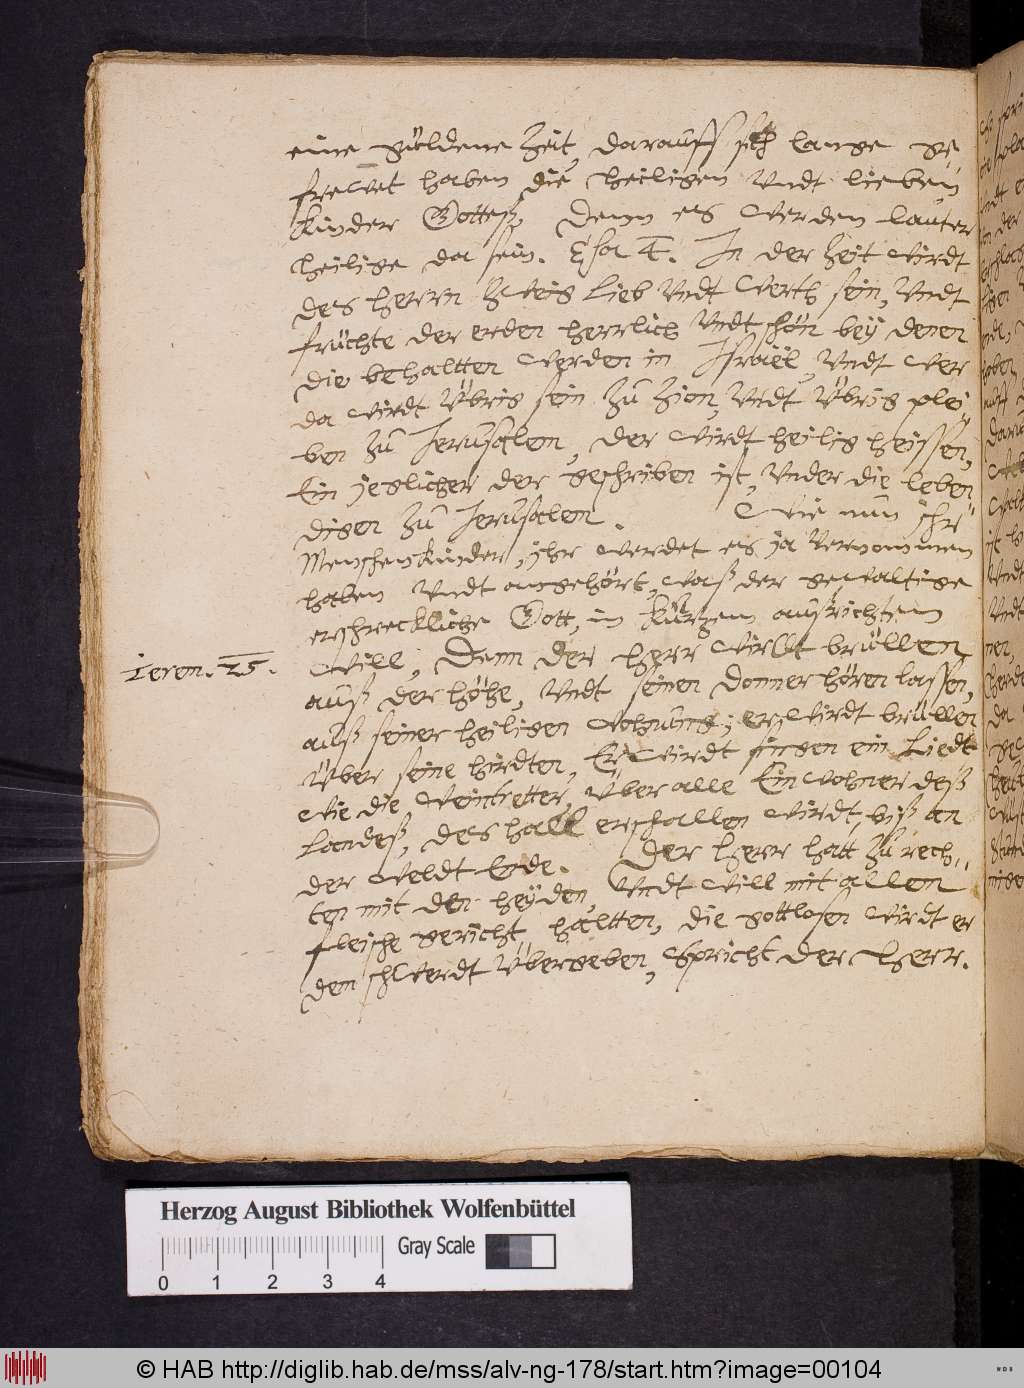 eine güldene Zeit, darauff sich lange ge
frewet haben die heiligen Vndt lieben
Kinder Gotteß, Denn es werden lauter
heilige da sein. Esa 4. In der Zeit wirdt
des herrn Zweig lieb Vndt werth sein, Vndt
früchte der erden herrlich Vndt schön bey denen
die behaltten werden in Israël, Vndt wer
da wirdt Vbrig sein Zu Zion, Vndt Vbrig plei
ben Zu Jerusalem, der wirdt heilig heissen,
Ein jeglicher der geschriben ist, Vnder die leben
digen Zu Jerusalem. Wie nun ihr
Menschen Kinder, ihr werdet es ja Vernommen
haben Vndt angehört, waß der gewaltige
erschreckliche Gott, in kurtzem außrichten
Jerem. 25. will, Dann der herr wirdt brüllen
auß der höhe, Vndt seinen donner hören lassen,
auß seiner heiligen wohnung; er wirdt brüllen
Vber seine hirdten, Er wirdt singen ein Liedt
wie die Weintretter, Vber alle Einwohner deß
Landeß, des hall erschallen wirdt, biß an
der weldt Ende. Der herr hatt Zu rech,,
ten mit den heyden, Vndt will mit allem
fleische gericht haltten, die gottlosen wirdt er
dem schwerdt Vbergeben, Spricht der herr.
Herzog August Bibliothek Wolfenbüttel
0 1 2 3 4 Gray Scale
© HAB http://diglib.hab.de/mss/alv-ng-178/start.htm?image=00104